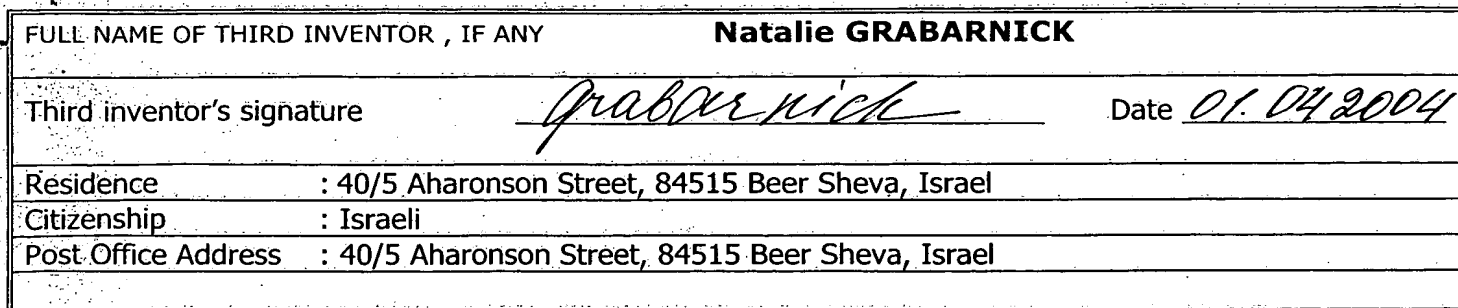 FULL NAME OF THIRD INVENTOR , IF ANY Natalie GRABARNICK
Third inventor's signature grabarnick Date 01.04 2004
Residence : 40/5 Aharonson Street, 84515 Beer Sheva, Israel
Citizenship : Israeli
Post Office Address : 40/5 Aharonson Street, 84515 Beer Sheva, Israel